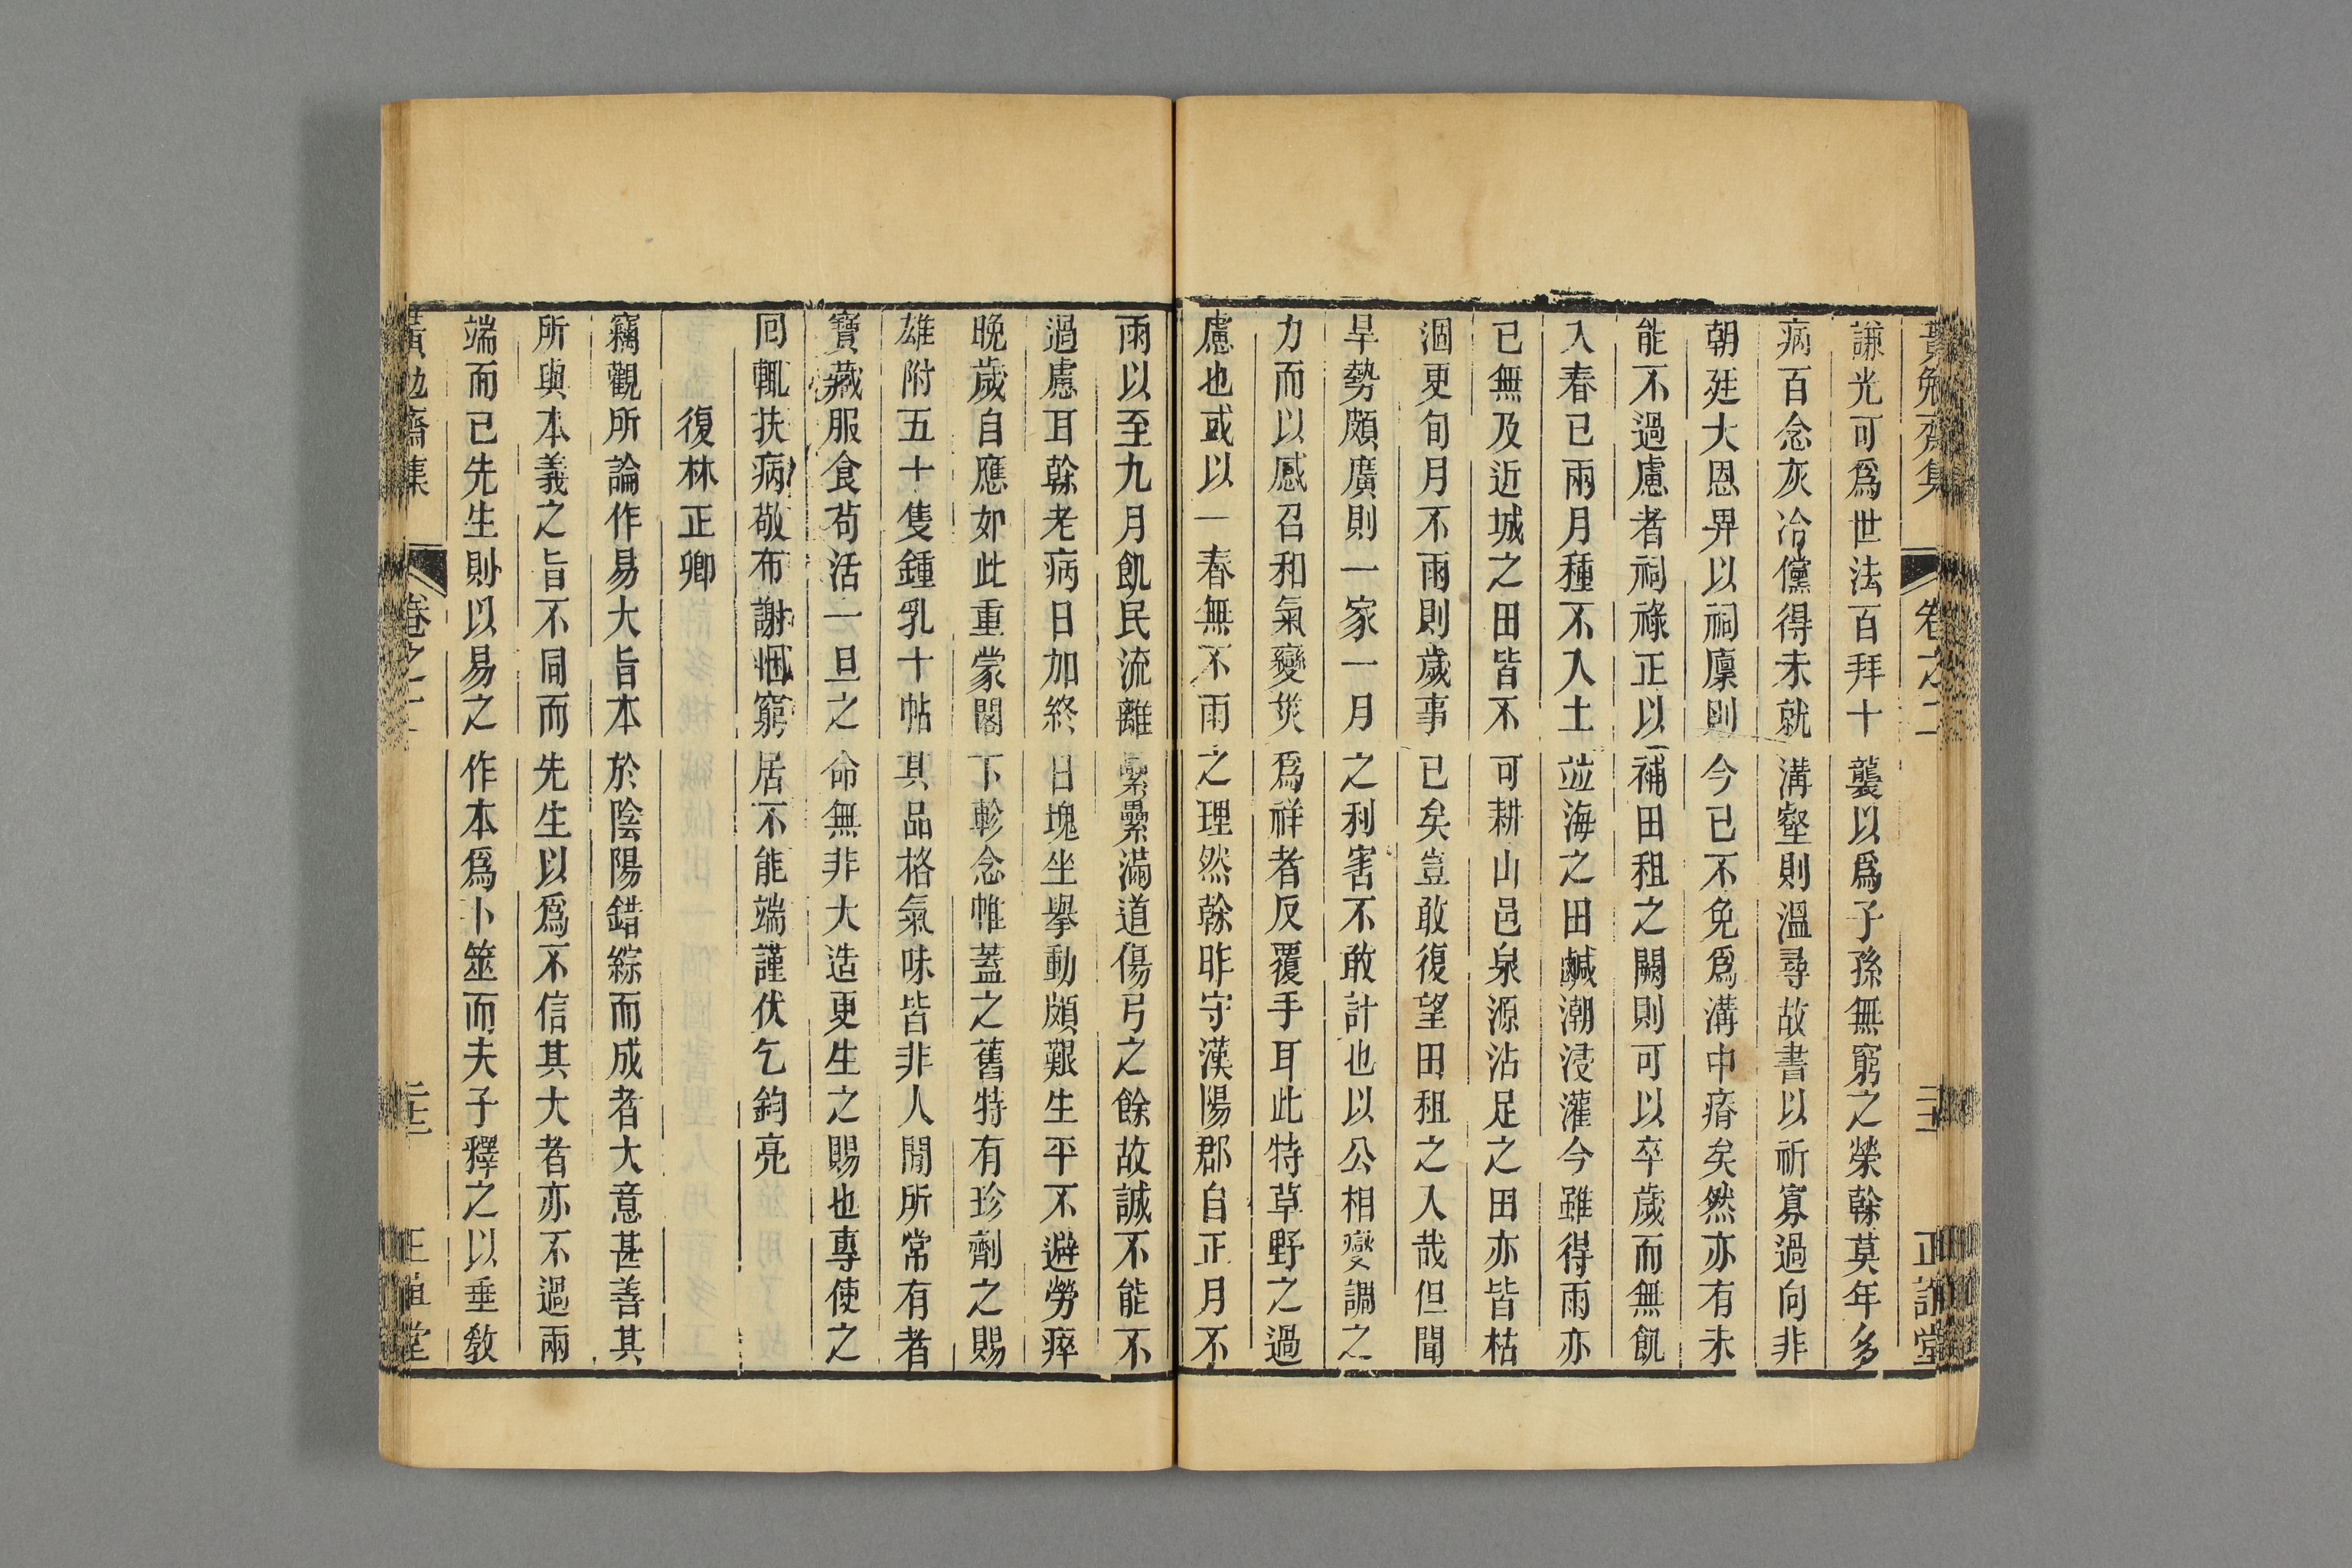 黃勉齋集 卷之二 正誼堂
謙光可爲世法百拜十襲以爲子孫無窮之榮榦莫年多
病百念灰冷儻得未就溝壑則溫尋故書以祈寡過向非
朝廷大恩畀以祠廩則今已不免爲溝中瘠矣然亦有未
能不過慮者祠祿正以補田租之闕則可以卒歲而無飢
入春已兩月種不入土並海之田鹹潮浸灌今雖得雨亦
已無及近城之田皆不可耕山邑泉源沾足之田亦皆枯
涸更旬月不雨則歲事已矣豈敢復望田租之入哉但聞
旱勢頗廣則一家一月之利害不敢計也以公相變調之
力而以感召和氣變災爲祥者反覆手耳此特草野之過
慮也或以一春無不雨之理然榦昨守漢陽郡自正月不
雨以至九月飢民流離纍纍滿道傷弓之餘故誠不能不
過慮耳榦老病日加終日塊坐擧動頗艱生平不避勞瘁
晚歲自應如此重蒙閣下軫念帷蓋之舊特有珍劑之賜
雄附五十隻鍾乳十帖其品格氣味皆非人閒所常有者
寶藏服食苟活一旦之命無非大造更生之賜也專使之
囘輒扶病敬布謝悃窮居不能端謹伏乞鈞亮
復林正卿
竊觀所論作易大旨本於陰陽錯綜而成者大意甚善其
所與本義之旨不同而先生以爲不信其大者亦不過兩
端而已先生則以易之作本爲卜筮而夫子釋之以垂敎
黃勉齋集 卷之二 正誼堂